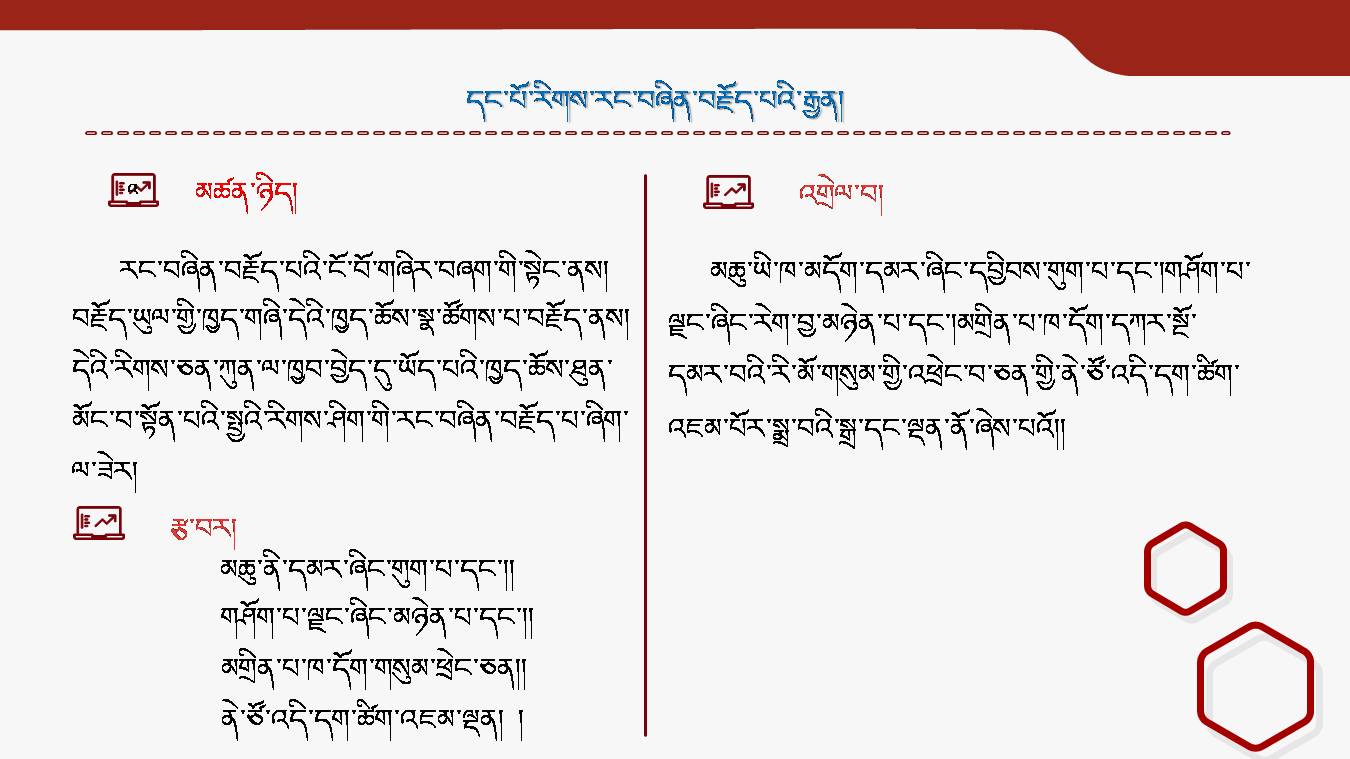 དང་པོ་རིགས་རང་བཞིན་བརྗོད་པའི་རྒྱན།
མཚན་ཉིད།
རང་བཞིན་བརྗོད་པའི་ངོ་བོ་གཞིར་བཞག་གི་སྟེང་ནས།
བརྗོད་ཡུལ་གྱི་ཁྱད་གཞི་དེའི་ཁྱད་ཆོས་སྣ་ཚོགས་པ་བརྗོད་ནས།
དེའི་རིགས་ཅན་ཀུན་ལ་ཁྱབ་བྱེད་དུ་ཡོད་པའི་ཁྱད་ཆོས་ཐུན་
མོང་བ་སྟོན་པའི་སྤྱིའི་རིགས་ཤིག་གི་རང་བཞིན་བརྗོད་པ་ཞིག་
ལ་ཟེར།
རྩ་བར།
མཆུ་ནི་དམར་ཞིང་གུག་པ་དང་།།
གཤོག་པ་ལྗང་ཞིང་མཉེན་པ་དང་།།
མགྲིན་པ་ཁ་དོག་གསུམ་ཕྲེང་ཅན།།
ནེ་ཙོ་འདི་དག་ཚིག་འཇམ་ལྡན། །
འགྲེལ་བ།
མཆུ་ཡི་ཁ་མདོག་དམར་ཞིང་དབྱིབས་གུག་པ་དང་།གཤོག་པ་
ལྗང་ཞིང་རེག་བྱ་མཉེན་པ་དང་།མགྲིན་པ་ཁ་དོག་དཀར་སྔོ་
དམར་བའི་རི་མོ་གསུམ་གྱི་འཕྲེང་བ་ཅན་གྱི་ནེ་ཙོ་འདི་དག་ཚིག་
འཇམ་པོར་སྨྲ་བའི་སྒྲ་དང་ལྡན་ནོ་ཞེས་པའོ།།